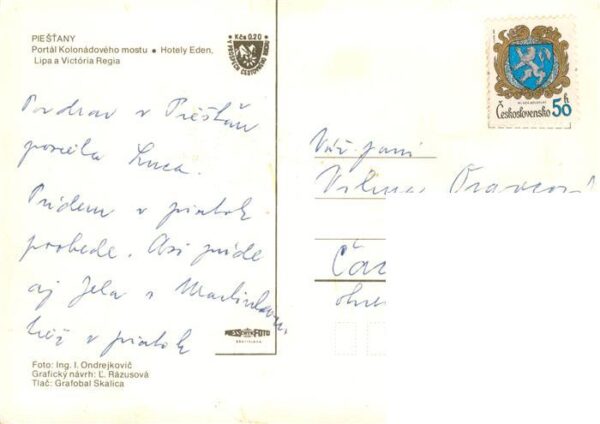 PIEŠŤANY
Portál Kolonádového mostu • Hotely Eden,
Lipa a Victória Regia
Kčs 0,20
Pozdrav z Piešťan
posiela Luca.
Prídem v piatok
poobede. Asi príde
aj Jela s Martinkou,
tiež v piatok
PRESSFOTO
BRATISLAVA
Foto: Ing. I. Ondrejkovič
Grafický návrh: Ľ. Rázusová
Tlač: Grafobal Skalica
Československo 50 h
Váž. pani
Vilma Oravcová
Čad
okres